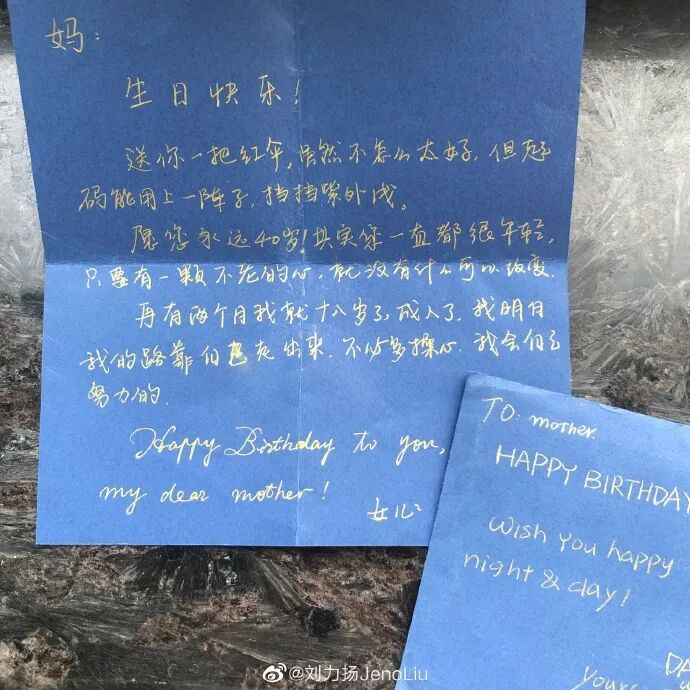 妈：
生日快乐！
送你一把红伞，虽然不怎么太好，但起
码能用上一阵子，挡挡紫外线。
愿您永远40岁！其实您一直都很年轻，
只要有一颗不老的心，就没有什么可以改变．
再有两个月我就十八岁了，成人了．我明白
我的路靠自己走出来．不必多操心．我会自己
努力的．
Happy Birthday to you,
my dear mother!
女儿
TO: mother.
HAPPY BIRTHDAY
Wish you happy
night & day!
DA
Yours
@刘力扬JenoLiu